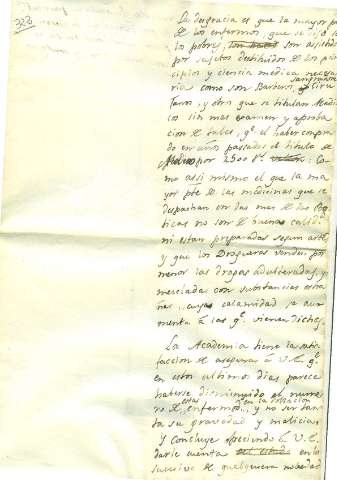 323
La desgracia es que la mayor p.te
de los enfermos, que se dijo se
los pobres, son asistidos
por sujetos destituidos de los prin
cipios y ciencia medica necesa
ria como son Barberos, sangradores Ciru
janos, y otros que se titulan Medi
cos sin mas examen y aproba
cion de tales, q.e el haber compra
do en años passados el titulo de
Medico por 2500 r.s Co
mo assi mismo el que la ma
yor pte de las medicinas que se
despachan en las mas de las Bo
ticas no son de buena calidad
ni estan preparadas segun arte,
y que los Drogueros venden por
menor las drogas adulteradas, y
mezcladas con substancias estra
ñas, cuya calamidad se au
menta a las q.e vienen dichas.
La Academia tiene la satis
faccion de asegurar a V.E. q.e
en estos ultimos dias parece
haberse disminuido el nume
ro de estas enfermos en la Poblacion, y no ser tan
ta su gravedad y malicia.
Y concluye ofreciendo a V.E.
darle cuenta en lo
sucesivo de qualquiera novedad